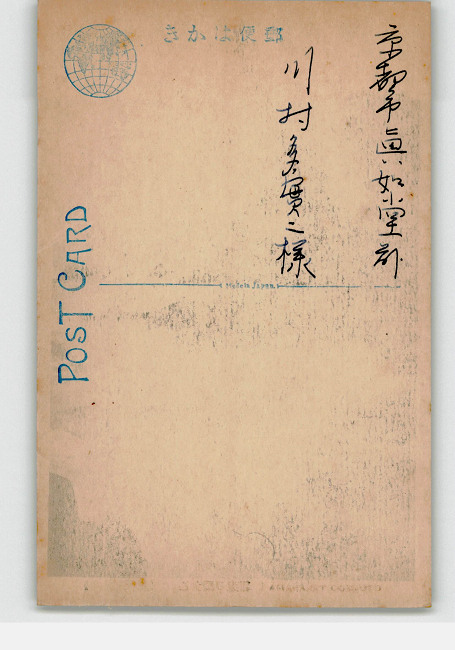 きかは便郵
京都市眞如堂前
川村多實二様
POST CARD
Made in Japan